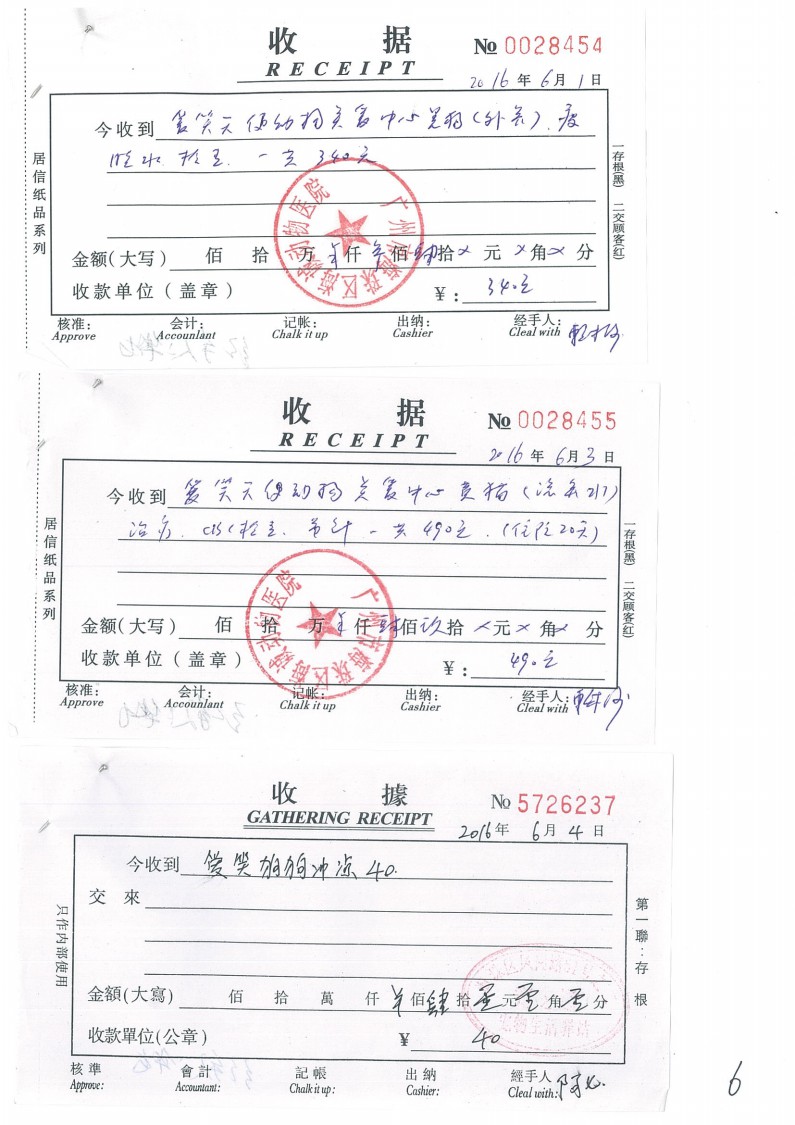 收 据
RECEIPT
№ 0028454
2016 年 6 月 1 日
今收到 爱笑天使动物关爱中心 (外寄)
检查 一共 340元
金额(大写) 佰 拾 万 仟 叁佰 肆拾 × 元 × 角 × 分
收款单位(盖章) ¥: 340元
核准: 会计: 记帐: 出纳: 经手人:
Approve Accountlant Chalk it up Cashier Cleal with
居信纸品系列
一存根(黑) 二交顾客(红)
广州市海珠区海 动物医院
收 据
RECEIPT
№ 0028455
2016 年 6 月 3 日
今收到 爱笑天使动物关爱中心 黄猫
治疗 CBC检查 一共490元 (住院20天)
金额(大写) 佰 拾 万 仟 肆佰 玖拾 × 元 × 角 × 分
收款单位(盖章) ¥: 490元
核准: 会计: 记帐: 出纳: 经手人:
Approve Accountlant Chalk it up Cashier Cleal with
居信纸品系列
一存根(黑) 二交顾客(红)
广州市海珠区海 动物医院
收 據
GATHERING RECEIPT
№ 5726237
2016 年 6 月 4 日
今收到 爱笑 狗狗冲凉 40.
交 來
金額(大寫) 佰 拾 萬 仟 佰 肆 拾 零 元 零 角 零 分
收款單位(公章) ¥ 40
核準 會計 記帳 出納 經手人
Approve: Accountant: Chalk it up: Cashier: Cleal with:
只作內部使用
第一聯:存根
6